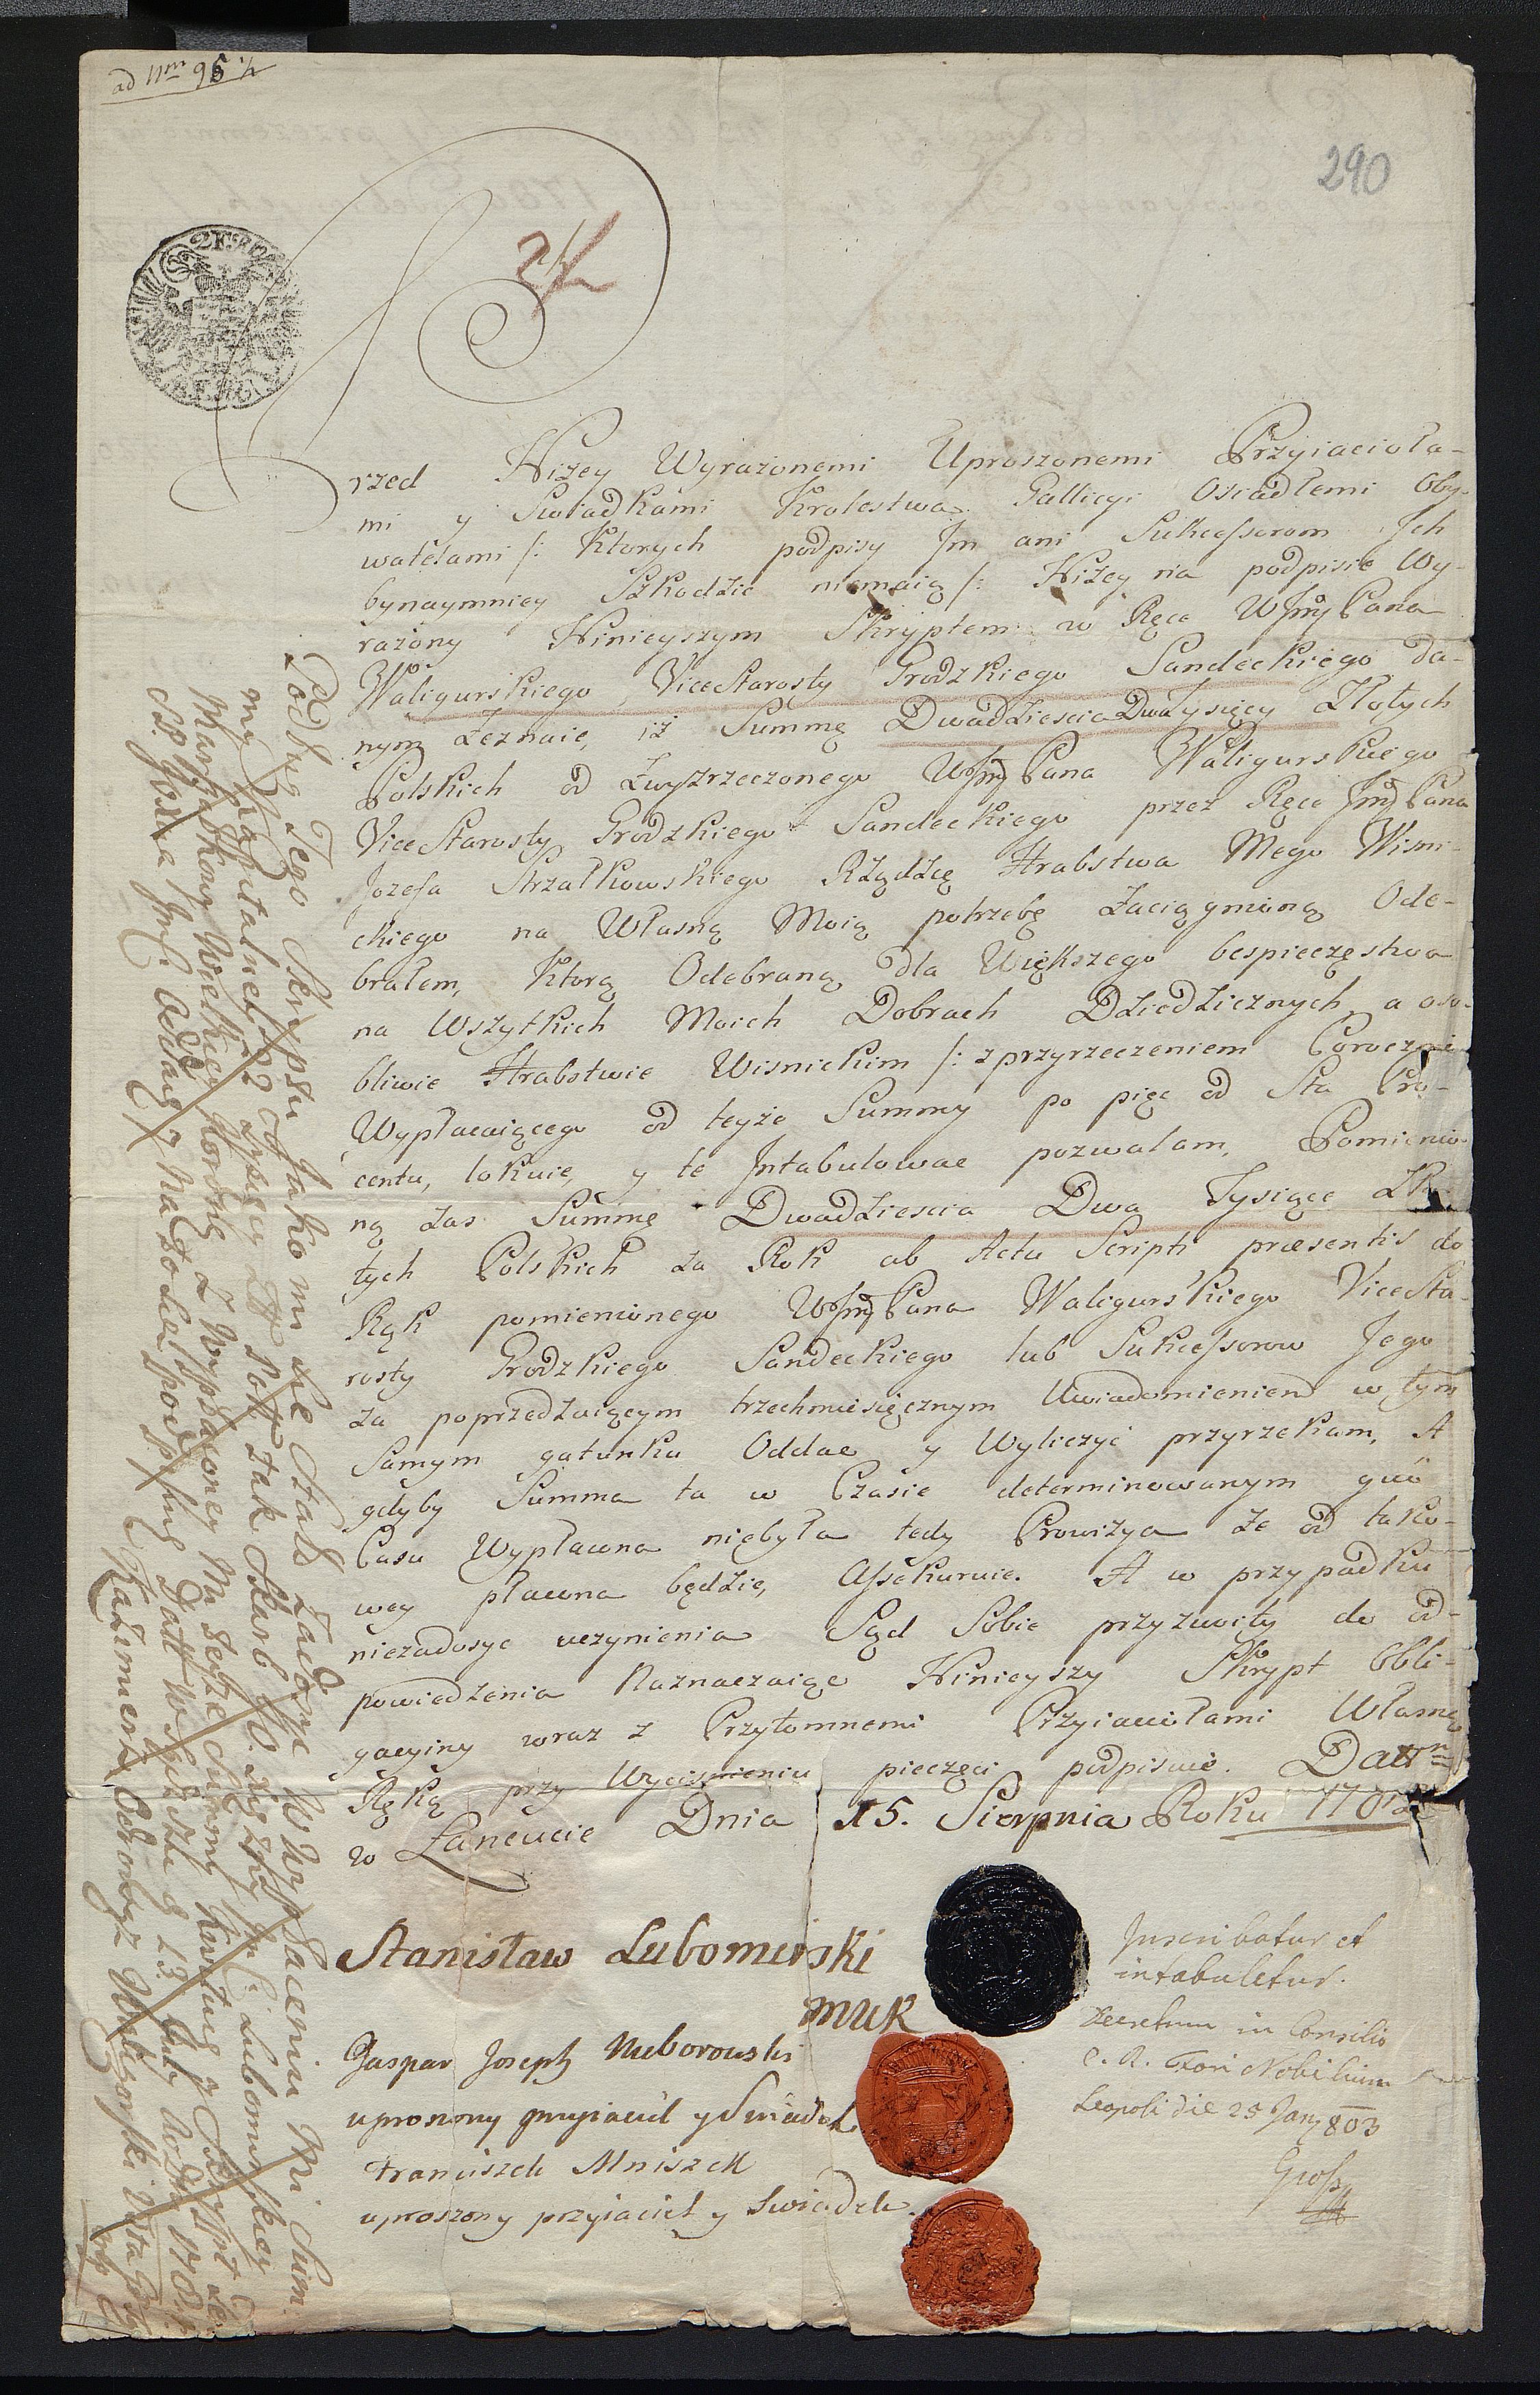 ad Nrm 95 ½
290
2K
Przed Niżey Wyrażonemi Uproszonemi Przyiacioła-
mi y Swiadkami Krolestwa Gallicyi Osiadłemi Oby-
watelami /: Ktorych podpisy Jm ani Sukcessorom Ich
bynaymniey Szkodzic niemaią :/ Niżey na podpisie Wy-
rażony Ninieyszym Skryptem w Ręce WJmć Pana
Waligurskiego, ViceStarosty Grodzkiego Sandeckiego Da-
nym Zeznaię, iż Summę Dwadziescia Dwa Tysięcy Złotych
Polskich od Zwyszrzeczonego WJmć Pana Waligurskiego
ViceStarosty Grodzkiego Sandeckiego przez Ręce Jmć Pana
Jozefa Strzałkowskiego Rządzcę Hrabstwa Mego Wisni-
ckiego na Własną Moią potrzebę Zaciągnioną Ode-
brałem, Ktorą Odebraną dla Większego bespieczęstwa
na Wszytkich Moich Dobrach Dziedzicznych, a oso-
bliwie Hrabstwie Wisnickim /: z przyrzeczeniem Coroczni
Wypłacaiącego od teyże Summy po pięc od Sta Pro-
centu, lokuię, y te Intabulowac pozwalam, Pomienio-
ną zas Summę Dwadziescia Dwa Tysiące Zło-
tych Polskich za Rok ab Actu Scripti præsentis do
Rąk pomienionego WJmć Pana Waligurskiego ViceSta-
rosty Grodzkiego Sandeckiego lub Sukcessorow Jego
za poprzedzaiącym trzechmiesięcznym Uwiadomieniem w tym
Samym gatunku Oddac y Wyliczyć przyrzekam, A
gdyby Summa ta w Czasie determinowanym quo
Casu Wypłacona niebyła tedy Prowizya że od tako-
wey płacona będzie, Assekuruię. A w przypadku
niezadosyc uczynienia Sąd Sobie przyzwoity do od-
powiedzenia Naznaczaiąc Ninieyszy Skrypt Obli-
gacyiny wraz z Przytomnemi Przyiaciołami Własną
Ręką przy Wycisnieniu pieczęci podpisuię. Dattn
w Łancucie Dnia 15. Sierpnia Roku
Stanisław Lubomirski
mLR
Gaspar Joseph
uproszony przyiaciel y Swiadek
Franciszek Mniszek
uproszony przyiaciel y Swiadek.
Inscribatur et
intabuletur.
Decretum in Consilio
C. R. Fori Nobilium
Leopoli die 25 Janu 803
Gross
Podług Tego Skryptu Jako mi sie Stało Zadosyc w Wypłaceniu Mi Sum-
my Kapitalney 22 Tysięcy Zł Pol tak Skarb JO. Xiężny Jm: Lubomirskiey
Marszałkowy Wielkiey Koronney z Wypłaconey Mi teyze Summy Kwituię y Skrypt
Jm: Oddaię y Na to się podpisuię Datt w d 23
Kazimierz Odrowąż Waligorski